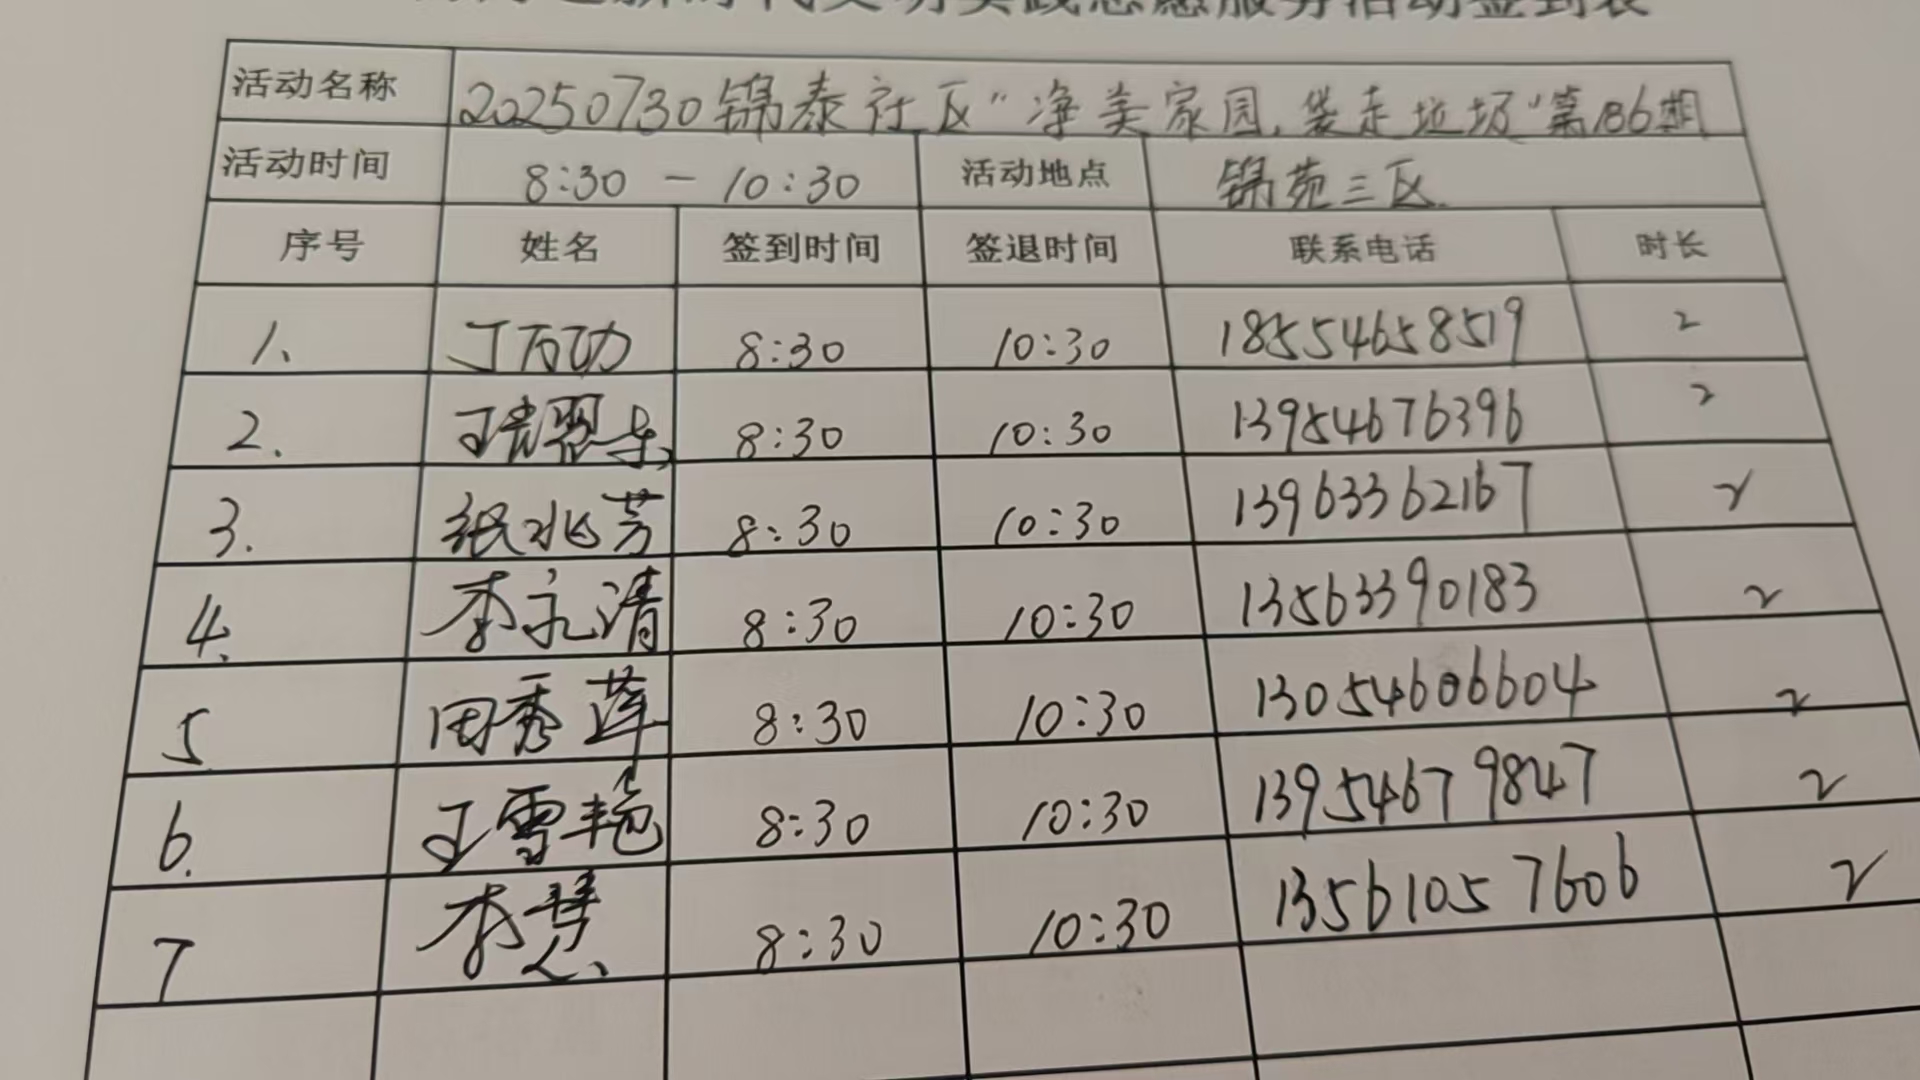 新时代文明实践志愿服务活动签到表
活动名称 20250730锦泰社区"净美家园,袋走垃圾"第186期
活动时间 8:30 - 10:30 活动地点 锦苑三区
序号 姓名 签到时间 签退时间 联系电话 时长
1、 丁万功 8:30 10:30 18554658519 2
2. 8:30 10:30 13954676396 2
3. 纸兆芳 8:30 10:30 13963362167 2
4. 李永清 8:30 10:30 13563390183 2
5 周秀莲 8:30 10:30 13054606604 2
6. 王雪艳 8:30 10:30 13954679847 2
7 李慧 8:30 10:30 13561057606 2